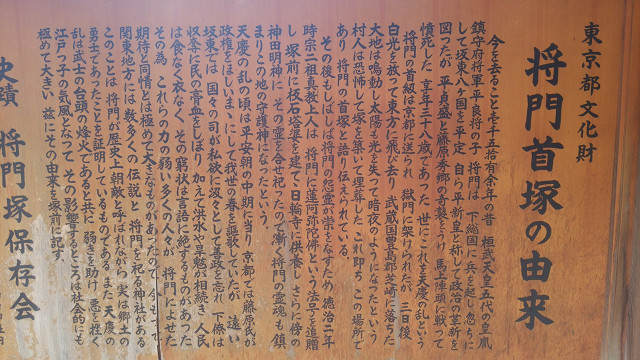 東京都文化財
将門首塚の由来
今を去ること壱千五拾有余年の昔 桓武天皇五代の皇胤
鎮守府将軍平良将の子 将門は 下総国に兵を起し 忽ちに
して坂東八ヶ国を平定 自ら平新皇と称して政治の革新を
図ったが 平貞盛と藤原秀郷の奇襲をうけ 馬上陣頭に戦って
憤死した 享年三十八歳であった 世にこれを天慶の乱という
将門の首級は京都に送られ 獄門に架けられたが 三日後
白光を放って東方に飛び去り 武蔵国豊島郡芝崎に落ちた
大地は鳴動し太陽も光を失って暗夜のようになったという
村人は恐怖して塚を築いて埋葬した これ即ち この場所で
あり 将門の首塚と語り伝えられている
その後もしばしば将門の怨霊が祟をなすため 徳治二年
時宗二祖真教上人は 将門に蓮阿弥陀佛という法号を追贈
し 塚前に板石塔婆を建て日輪寺に供養し さらに傍の
神田明神に その霊を合せ祀ったので漸く将門の霊魂も鎮
まりこの地の守護神になったという
天慶の乱の頃は平安朝の中期に当り 京都では藤原氏が
政権をほしいまゝにして我世の春を謳歌していたが 遠い
坂東では 国々の司が私欲に汲々として善政を忘れ 下僚は
収奪に民の膏血をしぼり 加えて洪水や旱魃が相続き 人民
は食なく衣なく その窮状は言語に絶するものがあった
その為 これらの力の弱い多くの人々が 将門によせた
期待と同情とは極めて大きなものがあったので 今もって
関東地方には数多くの伝説と 将門を祀る神社がある
このことは 将門が歴史上朝敵と呼ばれながら 実は郷土の
勇士であったことを証明しているものである また天慶の
乱は武士の台頭の烽火であると共に 弱きを助け 悪を挫く
江戸っ子の気風となって その影響するところは社会的にも
極めて大きい 茲にその由来を塚前に記す
史蹟 将門塚保存会